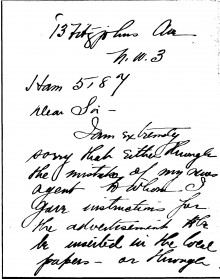 13 Fitzjohns Ave
N.W.3
Ham 5187
Dear Sir -
I am extremely
sorry that either through
the mistake of my news
agent to whom I
gave instructions for
the advertisement to
be inserted in the local
papers - or through